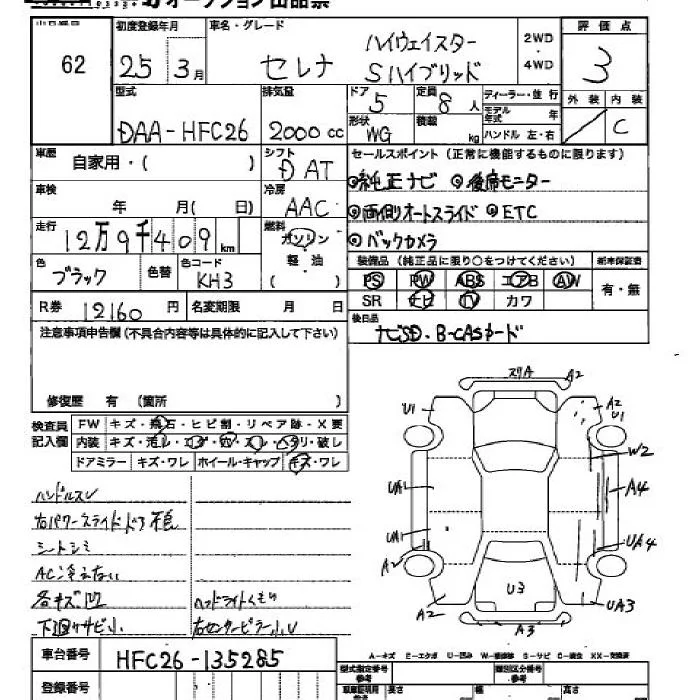 オークション出品票
出品番号 初度登録年月 車名・グレード 評価点
62 25 3月 セレナ ハイウェイスター Sハイブリッド 2WD・4WD 3
外装 内装
C
型式 排気量 ドア 定員 ディーラー・並行
DAA-HFC26 2000cc 5 8人 モデル年式 年
形状 積載 ハンドル 左・右
WG kg
車歴 自家用・( ) シフト DAT
セールスポイント(正常に機能するものに限ります)
◎純正ナビ ◎後席モニター
車検 年 月( 日) 冷房 AAC
◎両側オートスライド ◎ETC
走行 12万9千409km 燃料 ガソリン 軽油 ( )
◎バックカメラ
色 ブラック 色替 色コード KH3
装備品(純正品に限り○をつけてください) 新車保証書
PS PW ABS エアB AW 有・無
SR ナビ TV カワ
R券 12160円 名変期限 月 日
後日品 ナビSD、B-CASカード
注意事項申告欄(不具合内容等は具体的に記入して下さい)
修復歴 有 (箇所 )
検査員記入欄 FW キズ・飛石・ヒビ割・リペア跡・X要
内装 キズ・汚れ・コゲ・穴・スレ・ヘタリ・破し
ドアミラー キズ・ワレ ホイール・キャップ キズ・ワレ
ハンドルスレ
右パワースライドドア不良
シートシミ
AC冷えない
各キズ凹 ヘッドライトくもり
下廻りサビ小 右センターピラー小U
スリA A2
U1 A2 U1
W2
UA1 A4
UA1 UA4
A2
U3
A2 A3 UA3
車台番号 HFC26-135285
A-キズ E-エクボ U-凹み W-補修跡 S-サビ C-腐食 XX-交換済
型式指定番号 参考 類別区分番号 参考
登録番号 高さ 幅 長さ